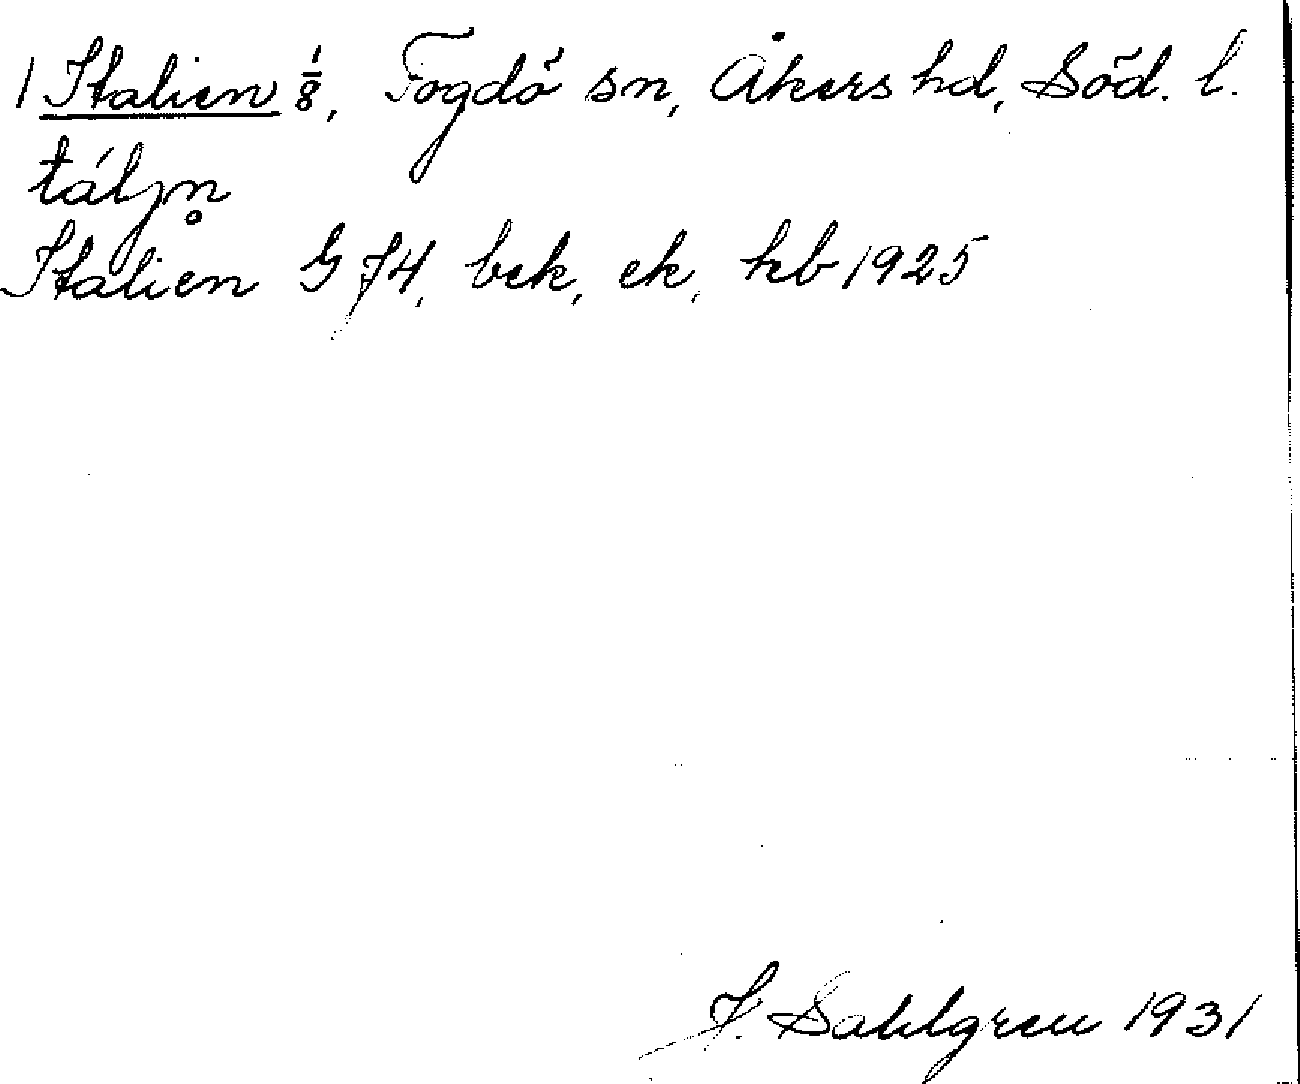 1 Italien 1/8, Fogdö sn, Åkers hd, Söd. l.
táljn̥
Italien GJ4, bek, ek, hb 1925
J. Sahlgren 1931